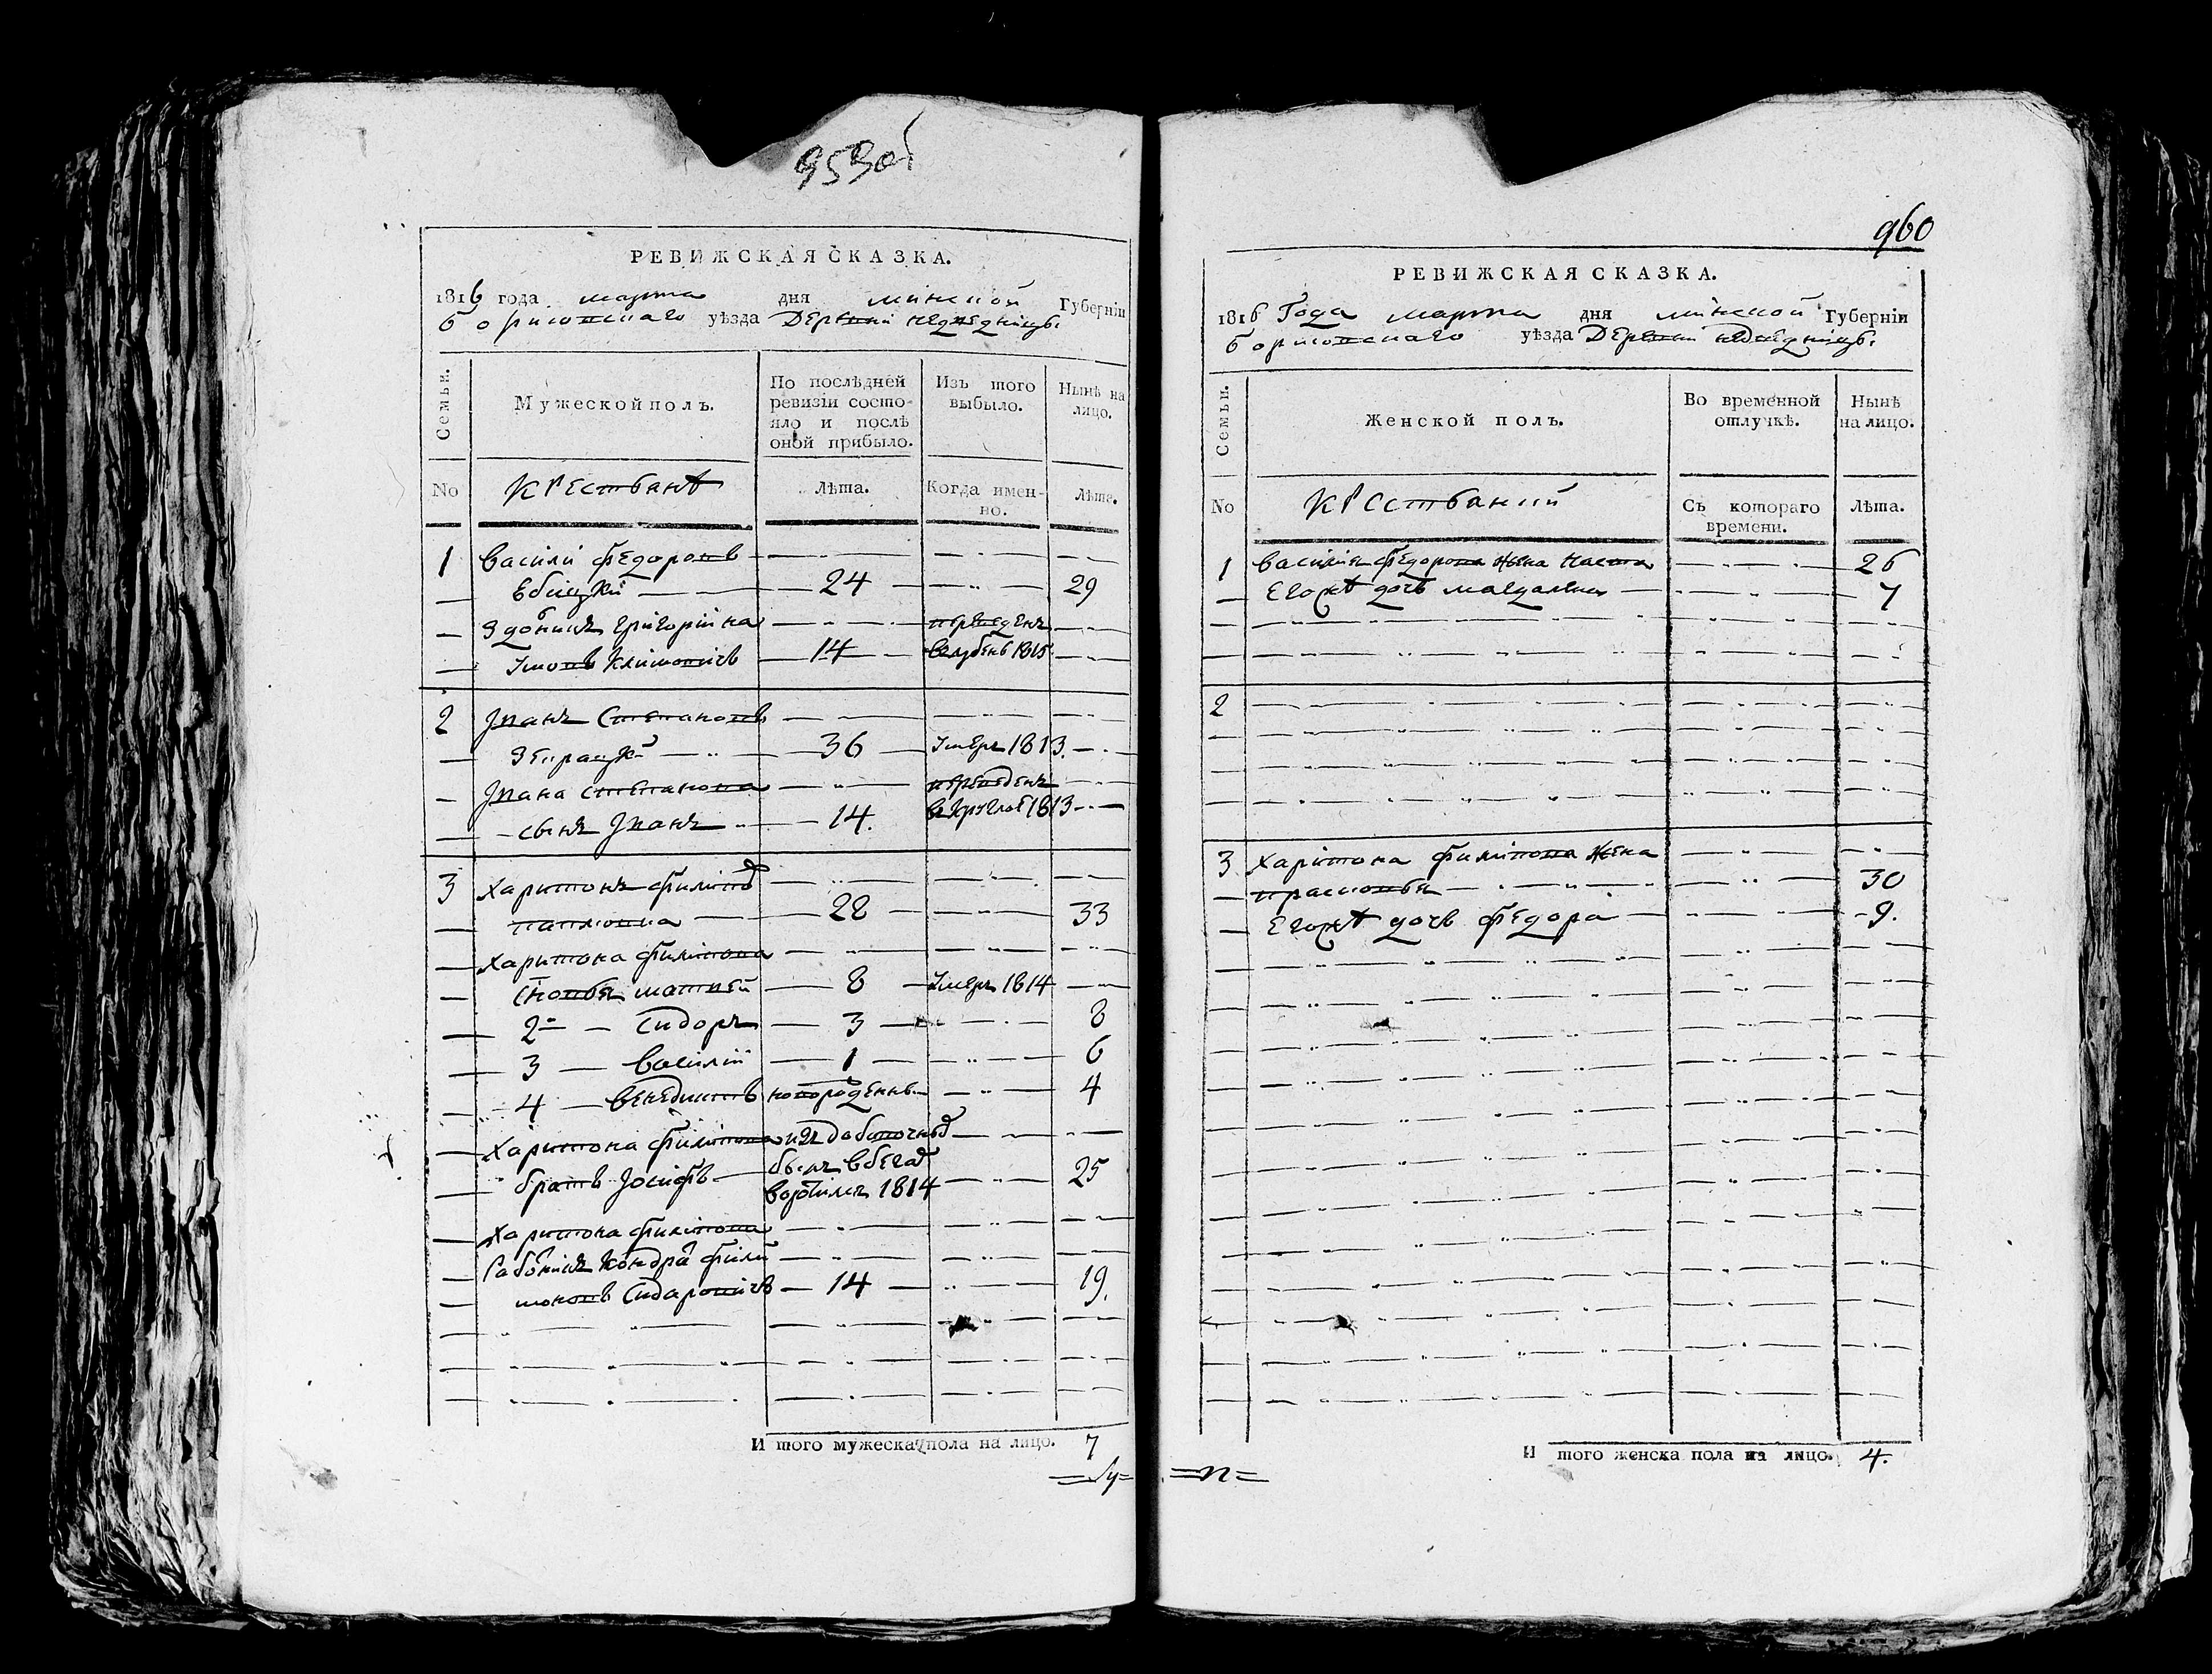 959об
РЕВИЖСКАЯ СКАЗКА.
1816 года марта дня минской Губерніи
борисовскаго уѣзда Деревни
Семьи.
Мужеской полъ.
По послѣдней ревизіи состо-
яло и послѣ
оной прибыло.
Изъ того
выбыло.
Нынѣ на
лицо.
No
Крестьянѣ
Лѣта.
Когда имен-
но.
Лѣта.
1 Василй Федоровъ
24 29
Григорійка переведенъ
Климовичъ 14 1815
2 Іванъ Степановъ
36 Умеръ 1813.
Івана Степанова переведенъ
сынъ Іванъ 14. 1813
3 Харитонъ
28 33
Харитона Филипова
Сыновья матвей 8 Умеръ 1814
2 - Сидоръ 3 8
3 - Василій 1 6
4 - Венедиктъ новорожденъ 4
Харитона Филипова
братъ Іосифъ былъ в бегаѣ 25
воротилъ 1814
Харитона Филипова
Кондра Фили
моновъ Сидаровичъ 14 19.
И того мужеска пола на лицо. 7
960
РЕВИЖСКАЯ СКАЗКА.
1816 Года марта дня минской Губерніи
борисовскаго уѣзда Деревни
Семьи.
Женской полъ.
Во временной
отлучкѣ.
Нынѣ
на лицо.
No
Съ котораго
времени.
Лѣта.
1 Василия Федорова жена Наста 26
Егожѣ дочь магдалена 7
2
3 Харитона Филипова жена
прасковья 30
Егожѣ дочь Федора 9.
И того женска пола на лицо. 4.